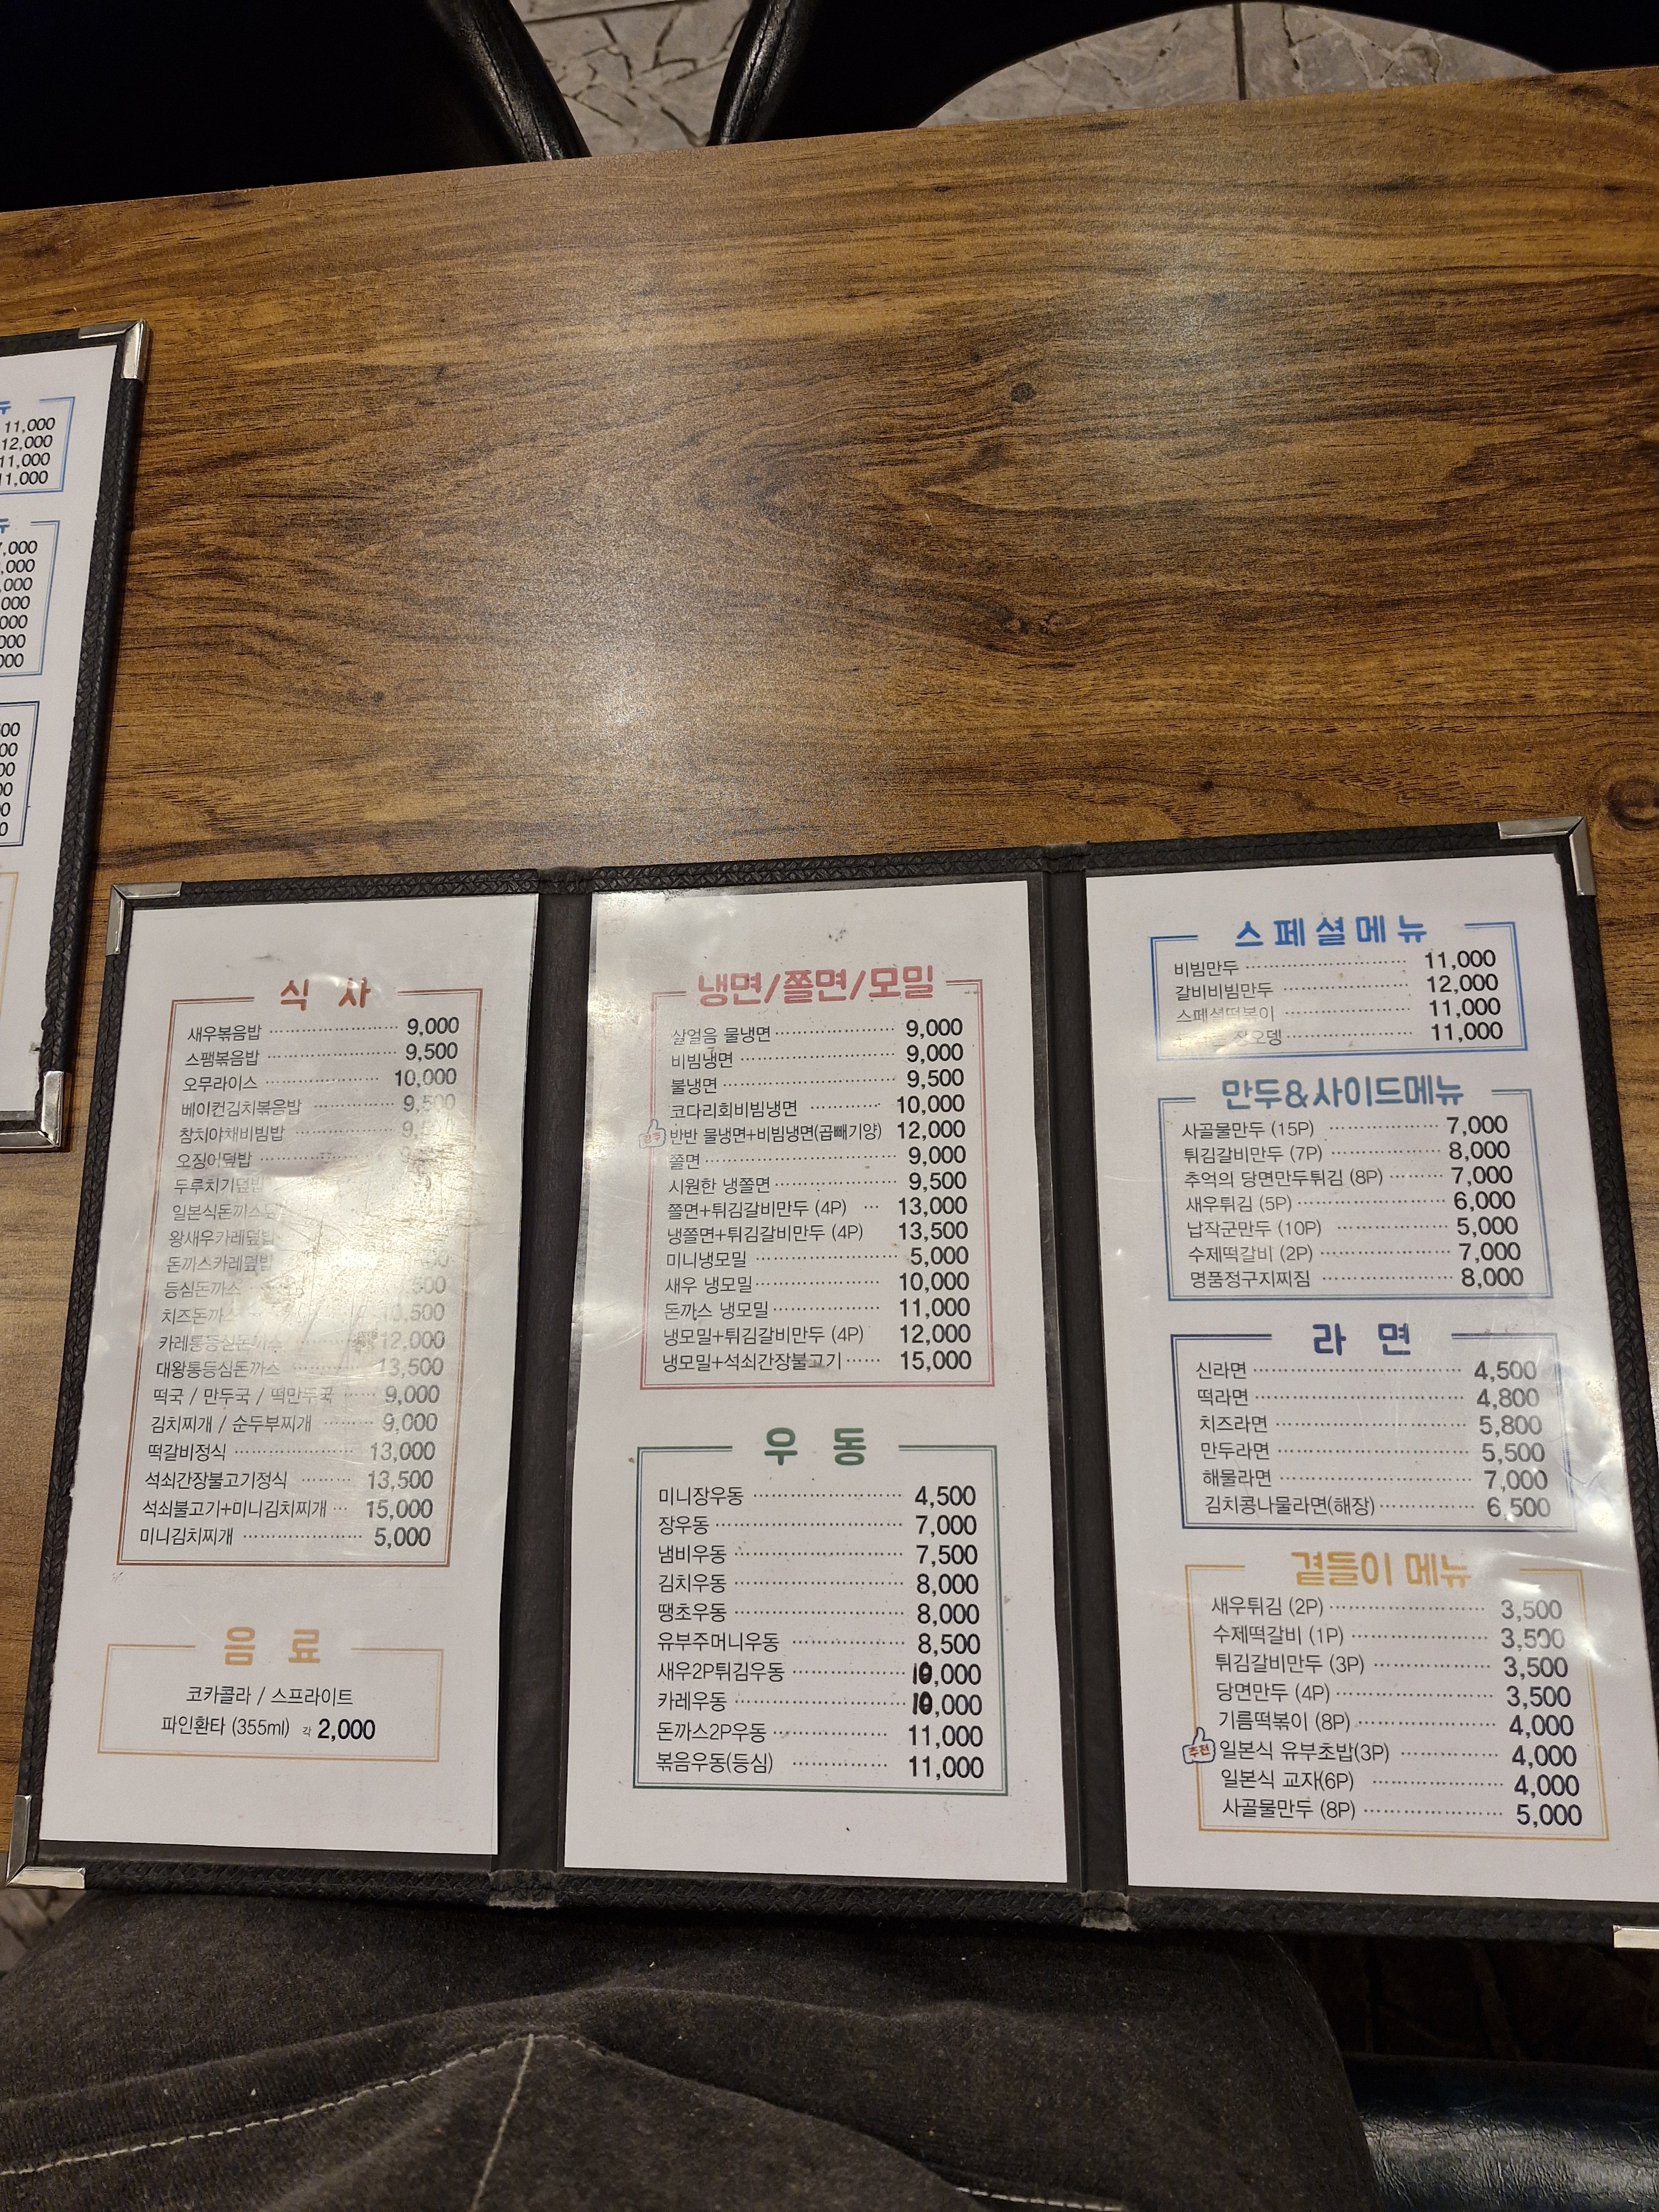 뉴
11,000
12,000
11,000
11,000
뉴
,000
,000
,000
000
000
000
000
00
00
00
00
0
0
식 사
새우볶음밥 9,000
스팸볶음밥 9,500
오무라이스 10,000
베이컨김치볶음밥 9,500
참치야채비빔밥
오징어덮밥
두루치기덮밥
일본식돈까스덮밥
왕새우카레덮밥
돈까스카레덮밥
등심돈까스
치즈돈까스
카레통등심돈까스 12,000
대왕통등심돈까스 13,500
떡국 / 만두국 / 떡만두국 9,000
김치찌개 / 순두부찌개 9,000
떡갈비정식 13,000
석쇠간장불고기정식 13,500
석쇠불고기+미니김치찌개 15,000
미니김치찌개 5,000
음 료
코카콜라 / 스프라이트
파인환타 (355ml) 각 2,000
냉면/쫄면/모밀
살얼음 물냉면 9,000
비빔냉면 9,000
불냉면 9,500
코다리회비빔냉면 10,000
반반 물냉면+비빔냉면(곱빼기양) 12,000
쫄면 9,000
시원한 냉쫄면 9,500
쫄면+튀김갈비만두 (4P) 13,000
냉쫄면+튀김갈비만두 (4P) 13,500
미니냉모밀 5,000
새우 냉모밀 10,000
돈까스 냉모밀 11,000
냉모밀+튀김갈비만두 (4P) 12,000
냉모밀+석쇠간장불고기 15,000
우 동
미니장우동 4,500
장우동 7,000
냄비우동 7,500
김치우동 8,000
땡초우동 8,000
유부주머니우동 8,500
새우2P튀김우동 10,000
카레우동 10,000
돈까스2P우동 11,000
볶음우동(등심) 11,000
스페셜메뉴
비빔만두 11,000
갈비비빔만두 12,000
스페셜떡볶이 11,000
장오뎅 11,000
만두&사이드메뉴
사골물만두 (15P) 7,000
튀김갈비만두 (7P) 8,000
추억의 당면만두튀김 (8P) 7,000
새우튀김 (5P) 6,000
납작군만두 (10P) 5,000
수제떡갈비 (2P) 7,000
명품정구지찌짐 8,000
라 면
신라면 4,500
떡라면 4,800
치즈라면 5,800
만두라면 5,500
해물라면 7,000
김치콩나물라면(해장) 6,500
곁들이 메뉴
새우튀김 (2P) 3,500
수제떡갈비 (1P) 3,500
튀김갈비만두 (3P) 3,500
당면만두 (4P) 3,500
기름떡볶이 (8P) 4,000
추천 일본식 유부초밥(3P) 4,000
일본식 교자(6P) 4,000
사골물만두 (8P) 5,000